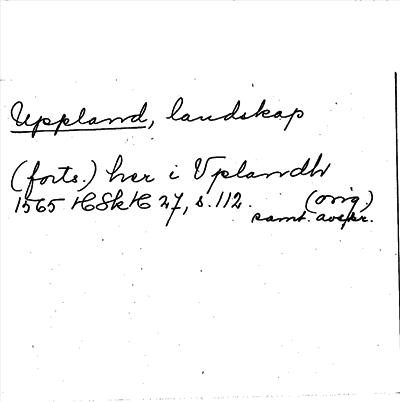 Uppland, landskap
(forts.) her i Vplandh
1565 HSkH 27, s. 112. (orig.)
samt. avskr.